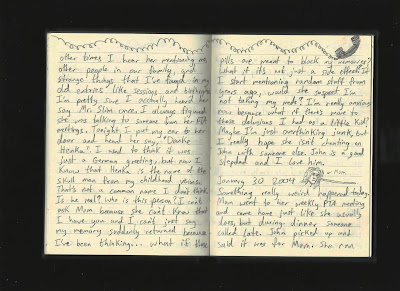 other times I hear her mentioning me,
other people in our family, and
strange things that I've found in my
old entries like sessions and
I'm pretty sure I actually heard her
say Mr. Slim once. I always figured
she was talking to someone from her PTA
meetings. Tonight I put my ear to her
door and heard her say, "Danke
Henker." I used to think it was
just a German greeting, but now I
know that Henker is the name of the
skull man from my childhood visions.
That's not a common name I don't think.
Is he real? Who is this person? I can't
ask Mom because she can't know that
I have you and I can't just say
my memory suddenly returned because
I've been thinking... what if these
pills are meant to block my memories?
What if it's not just a side effect? If
I start mentioning random stuff from
years ago, would she suspect I'm
not taking my meds? I'm really anxious
now because what if there's more to
those delusions I had as a little kid?
Maybe I'm just overthinking junk, but
I really hope she isn't cheating on
John with someone else. John is a good
stepdad and I love him.
← Mom
January 30 2004
Something really weird happened today.
Mom went to her weekly PTA meeting
and came home just like she usually
does, but during dinner someone
called late. John picked up and
said it was for Mom. She ran